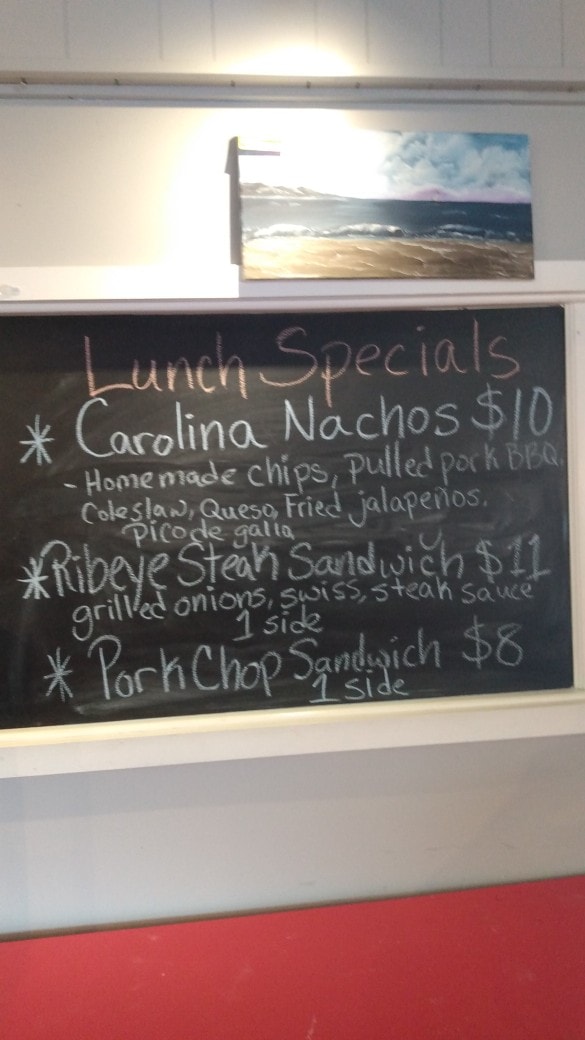 Lunch Specials
* Carolina Nachos $10
- Homemade chips, pulled pork BBQ,
Coleslaw, Queso, Fried jalapeños,
pico de galla
* Ribeye Steak Sandwich $11
grilled onions, swiss, steak sauce
1 side
* Pork Chop Sandwich $8
1 side